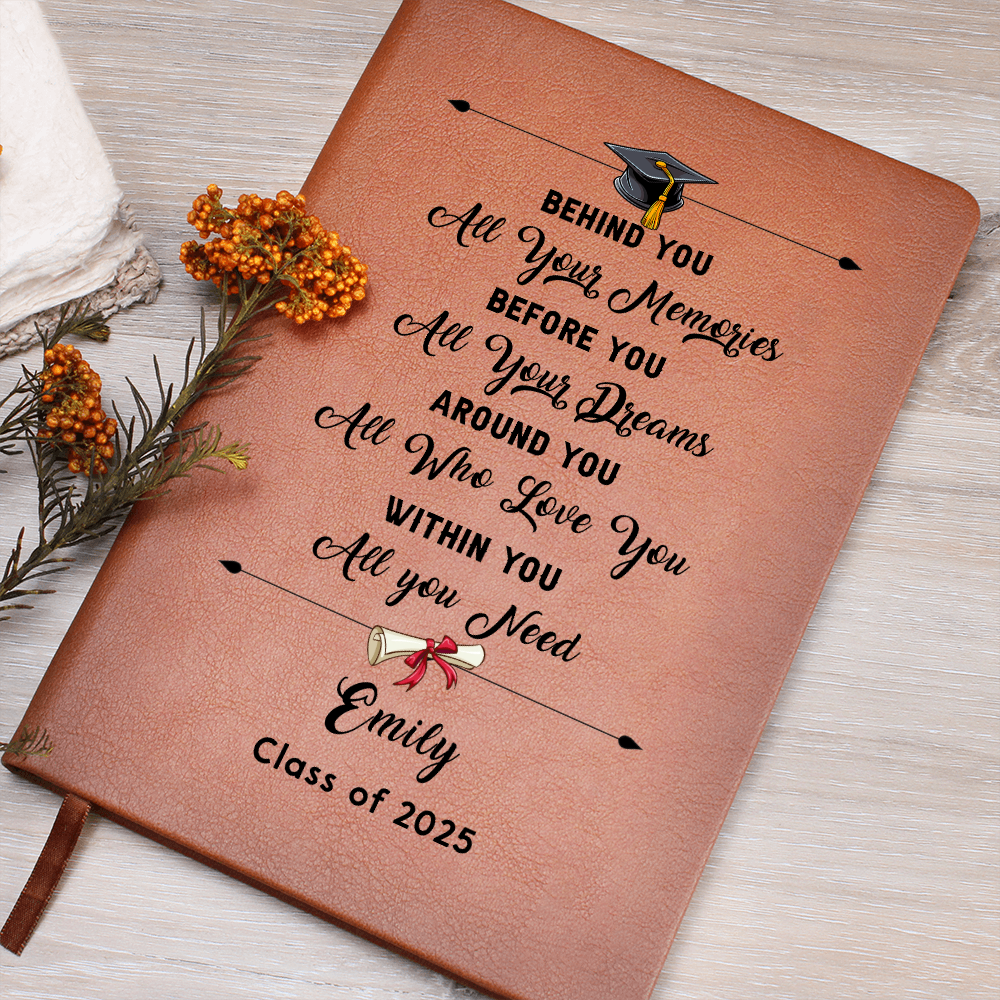 BEHIND YOU
All Your Memories
BEFORE YOU
All Your Dreams
AROUND YOU
All Who Love You
WITHIN YOU
All you Need
Emily
Class of 2025